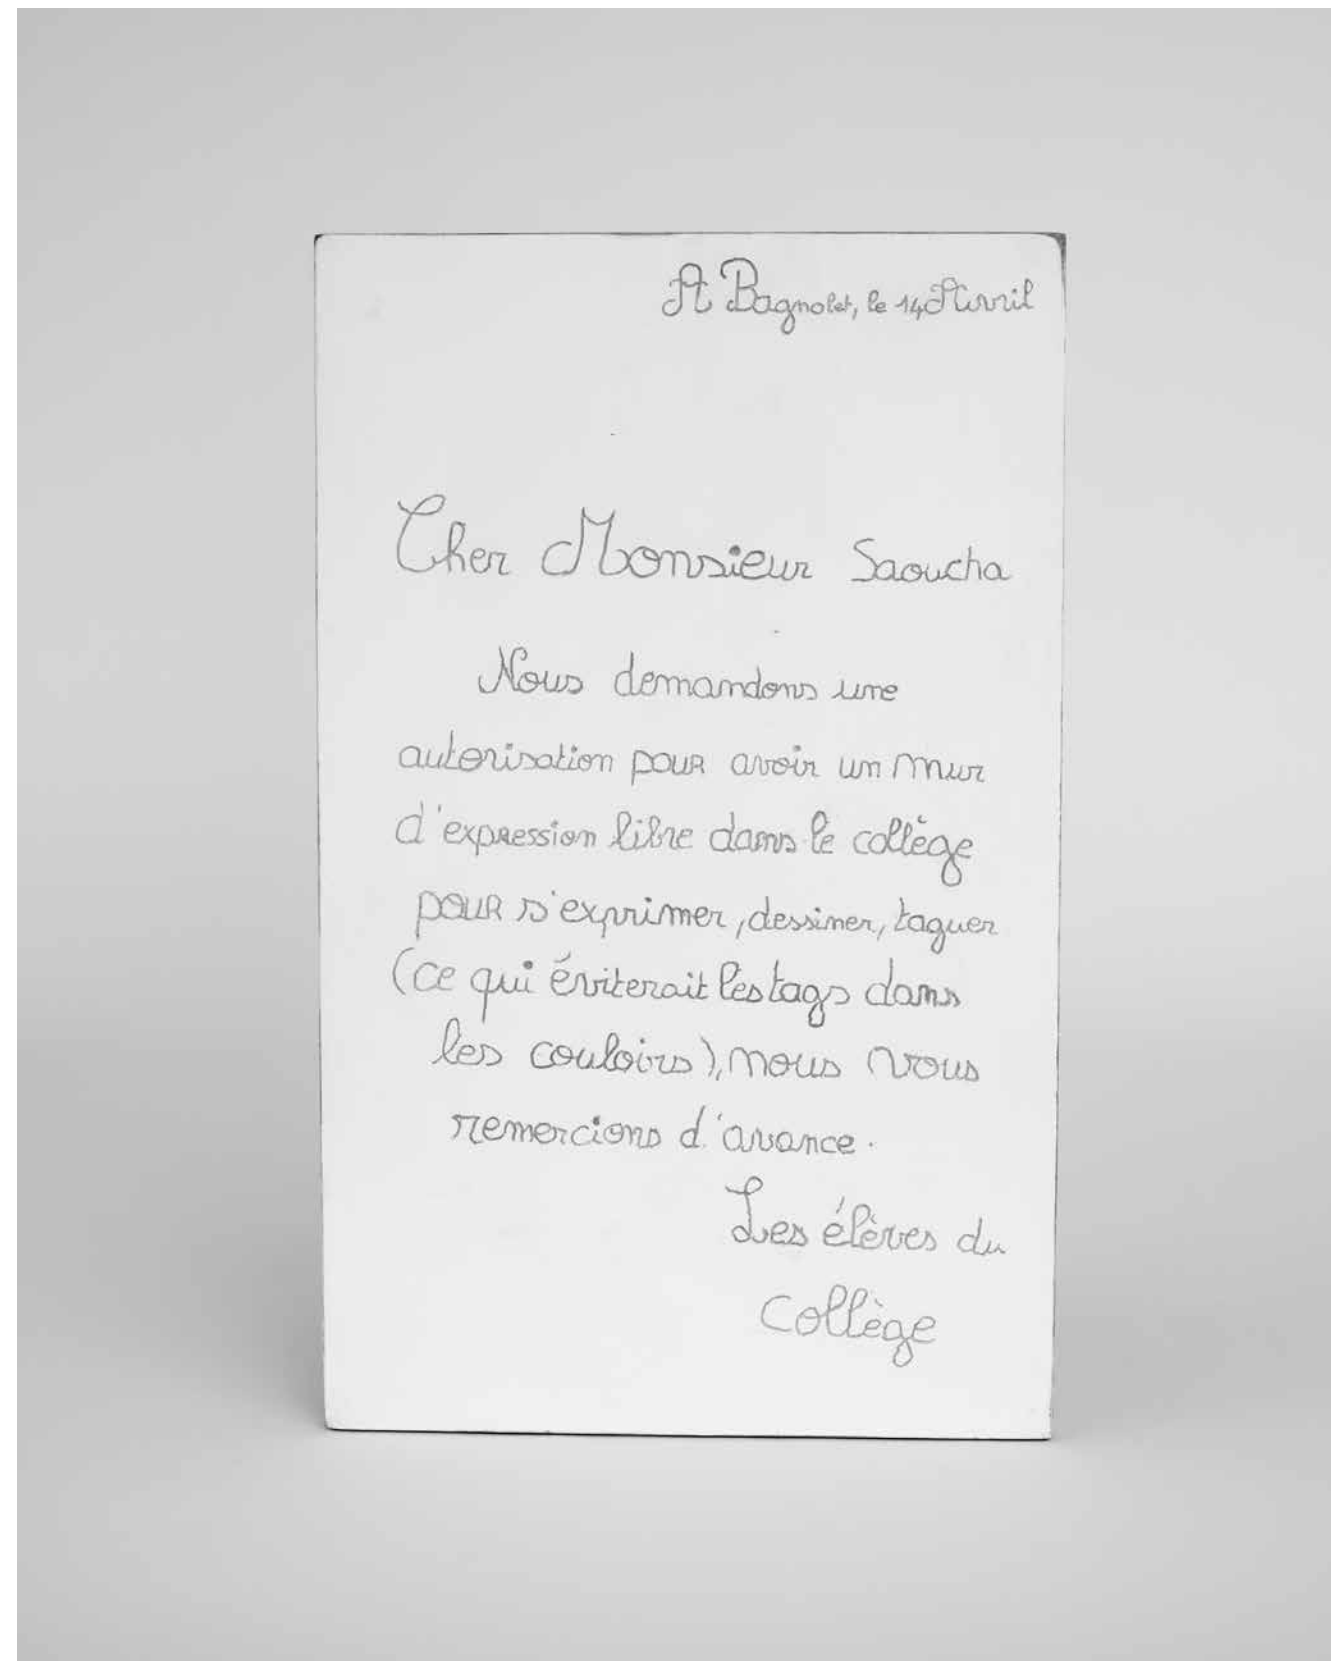 A Bagnolet, le 14 Avril
Cher Monsieur Saoucha
Nous demandons une
autorisation pour avoir un mur
d'expression libre dans le collège
pour s'exprimer, dessiner, taguer
(ce qui éviterait les tags dans
les couloirs), nous vous
remercions d'avance.
Les élèves du
collège